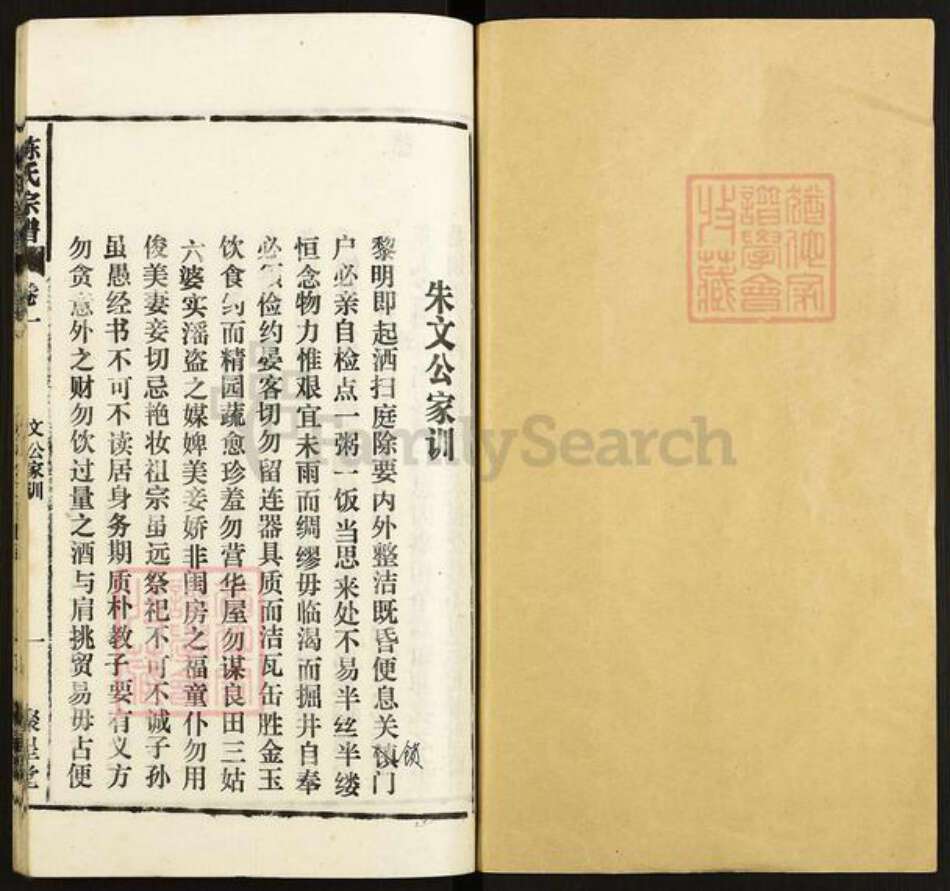 朱文公家训
黎明即起洒扫庭除要内外整洁既昏便息关镇门
锁
户必亲自检点一粥一饭当思来处不易半丝半缕
恒念物力惟艰宜未雨而绸缪毋临渴而掘井自奉
必须俭约晏客切勿留连器具质而洁瓦缶胜金玉
饮食约而精园蔬愈珍羞勿营华屋勿谋良田三姑
六婆实滛盗之媒婢美妾娇非闺房之福童仆勿用
俊美妻妾切忌艳妆祖宗虽远祭祀不可不诚子孙
虽愚经书不可不读居身务期质朴教子要有义方
勿贪意外之财勿饮过量之酒与肩挑贸易毋占便
陈氏宗谱
卷一
文公家训
一
聚星堂
FamilySearch
谱学会
收藏